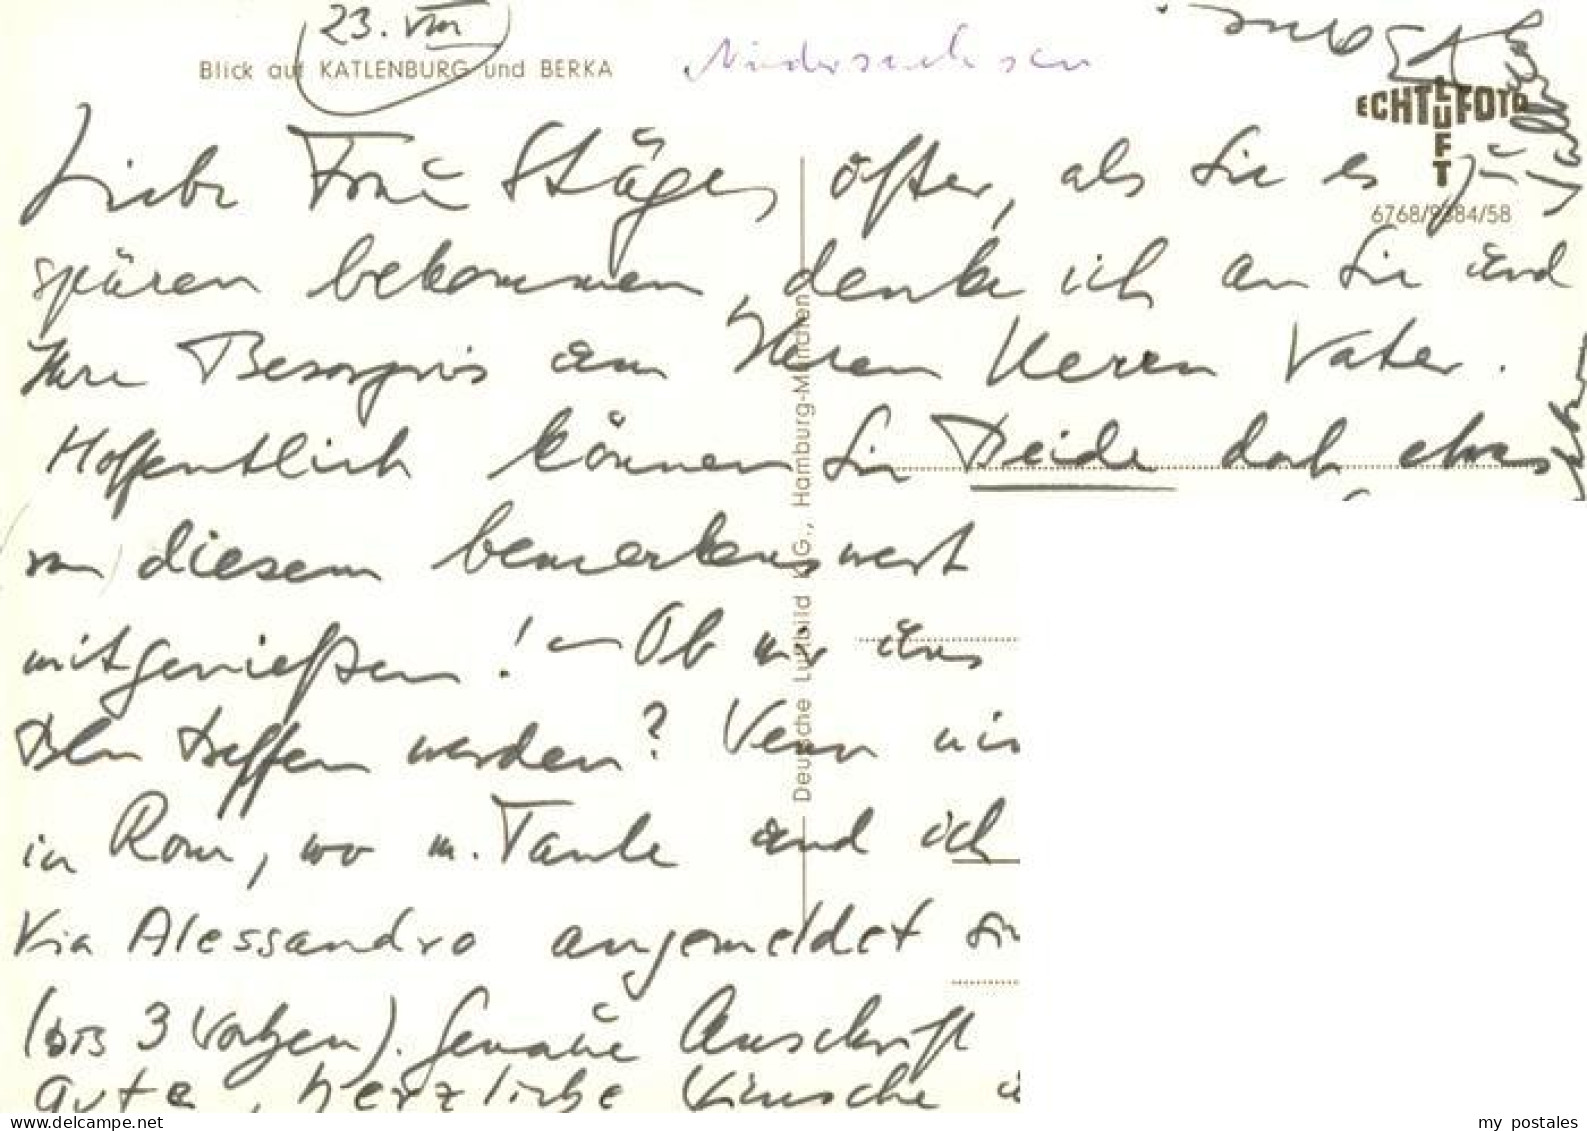 23. VIII
Blick auf KATLENBURG und BERKA
Niedersachsen
ECHT LUFT FOTO
6768/9384/58
Liebe Frau Stäger, öfter, als Sie es zu
spüren bekommen, denke ich an Sie und
Ihre Besorgnis um Ihren Herrn Vater.
Hoffentlich können Sie Beide doch etwas
von diesem bemerkenswert
mitgenießen! – Ob wir uns
treffen werden? Wenn wir
in Rom, wo m. Tante und ich
Via Alessandro angemeldet sin
(bis 3 Wochen). Genaue Anschrift
Gute, herzliche Wünsche
Deutsche Luftbild K.G., Hamburg-München
delcampe.net
my postales